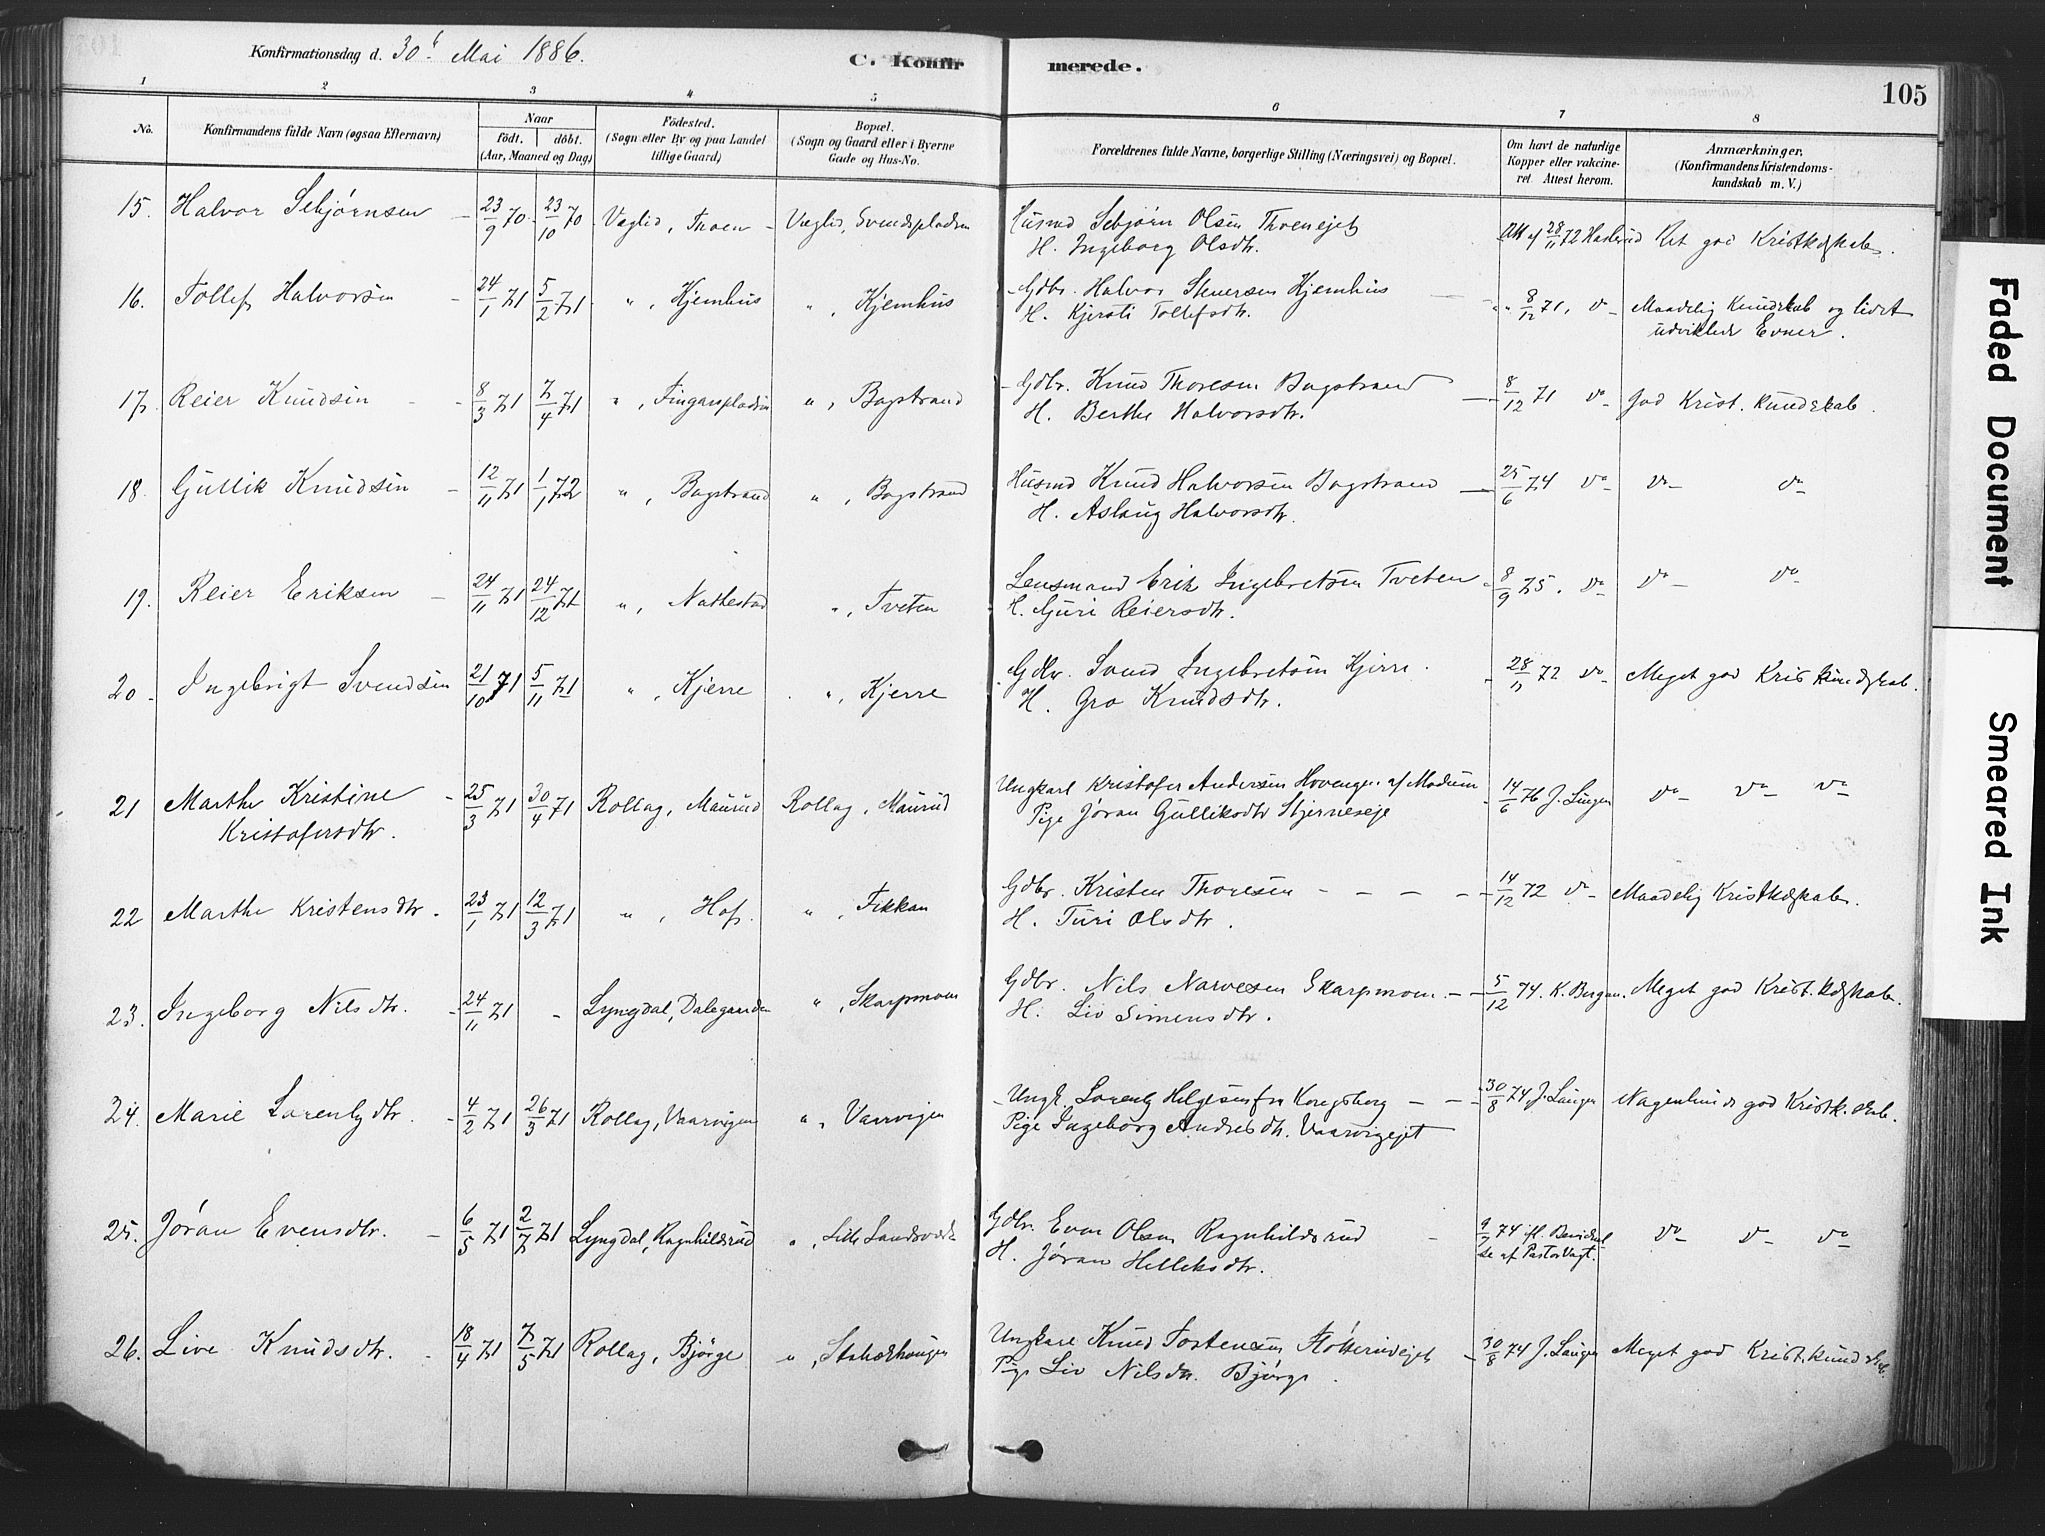 Konfirmationsdag d. 30te Mai 1886.
C. Konfirmerede.
105
1 2 3 4 5 6 7 8
No.
Konfirmandens fulde Navn (ogsaa Efternavn)
Naar
födt. döbt.
(Aar, Maaned og Dag)
Födested.
(Sogn eller By og paa Landet
tillige Gaard)
Bopæl.
(Sogn og Gaard eller i Byerne
Gade og Hus-No.
Forældrenes fulde Navne, borgerlige Stilling (Næringsvei) og Bopæl.
Om havt de naturlige
Kopper eller vakcine-
ret. Attest herom.
Anmærkninger,
(Konfirmandens Kristendoms-
kundskab m. V.)
15. Halvor Sebjørnsen 23/9 70 23/10 70 Veglid, Troen Veglid, Svendspladsen Husmd Sebjørn Olsen Thoenejet Att af 28/11 72 Haslerud Ret god Kristkdskab.
H. Ingeborg Olsdtr.
16. Tollef Halvorsen 24/1 71 5/2 71 " , Hjemhus " , Kjemhus Gdbr. Halvor Steuersen Hjemhus " " 8/12 71, do Maadelig Kundskab og lidet
H. Kjersti Tollefsdtr. udviklede Evner.
17. Reier Knudsen 8/3 71 7/4 71 " , Fingarspladsen " , Bagstrand Gdbr. Knud Thoresen Bagstrand 8/12 71 do God Krist. kundskab.
H. Berthe Halvorsdtr.
18. Gullik Knudsen 12/11 71 1/1 72 " , Bagstrand " , Bagstrand Husmd Knud Halvorsen Bagstrand 25/6 74 do do do
H. Aslaug Halvorsdtr.
19. Reier Eriksen 24/11 71 24/12 71 " , Nathestad " , Tveten Lensmand Erik Ingebretsen Tveten 8/9 75. do do do
H. Guri Reiersdtr.
20. Ingebrigt Svendsen 21/10 71 5/11 71 " , Kjerre " , Kjerre Gdbr. Svend Ingebretsen Kjerre. 28/11 72 do Meget god Kris kundskab.
H. Gro Knudsdtr.
21 Marthe Kristine 25/3 71 30/4 71 Rollag, Maurud Rollag, Maurud Ungkarl Kristofer Andersen Hovengen af Modum 14/6 76 J. Lingen do do do
Kristofersdtr. Pige Jøran Gulliksdtr Stjerneseje
22 Marthe Kristensdtr. 23/1 71 12/3 71 " , Hof. " , Fikkan Gdbr. Kristen Thoresen 14/12 72 do Maadelig Kristkdskab.
H. Turi Olsdtr.
23. Ingeborg Nilsdtr. 24/11 71 - Lyngdal, Dalegaarden " , Skarpmoen Gdbr. Nils Narvesen Skarpmoen 5/12 74. K. Bergan. Meget god Krist. kdskab.
H. Liv Simensdtr.
24. Marie Lorentzdtr 4/2 71 26/3 71 Rollag, Vaarvigen " , Vaarvigen Ungk. Lorentz Helgesen fra Kongsberg 30/8 74 J. Lingen Nogenlunde god Kristk. skab.
Pige Ingeborg Andrésdtr. Vaarvigejet
25. Jøran Evensdtr. 6/5 71 2/7 71 Lyngdal, Ragnhildsrud " , Lille Landsværk Gdbr. Even Olsen Ragnhildsrud 9/7 74 ifl. Bevidnel- do do do
H. Jøran Helleksdtr. se af Pastor Vogt.
26. Live Knudsdtr. 18/4 71 7/5 71 Rollag, Bjørge " , Ungkarl Knud Tostensen 30/8 74 J. Lingen Meget god Krist. kundskab.
Pige Liv Nilsdtr. Bjørge.
Faded Document
Smeared Ink